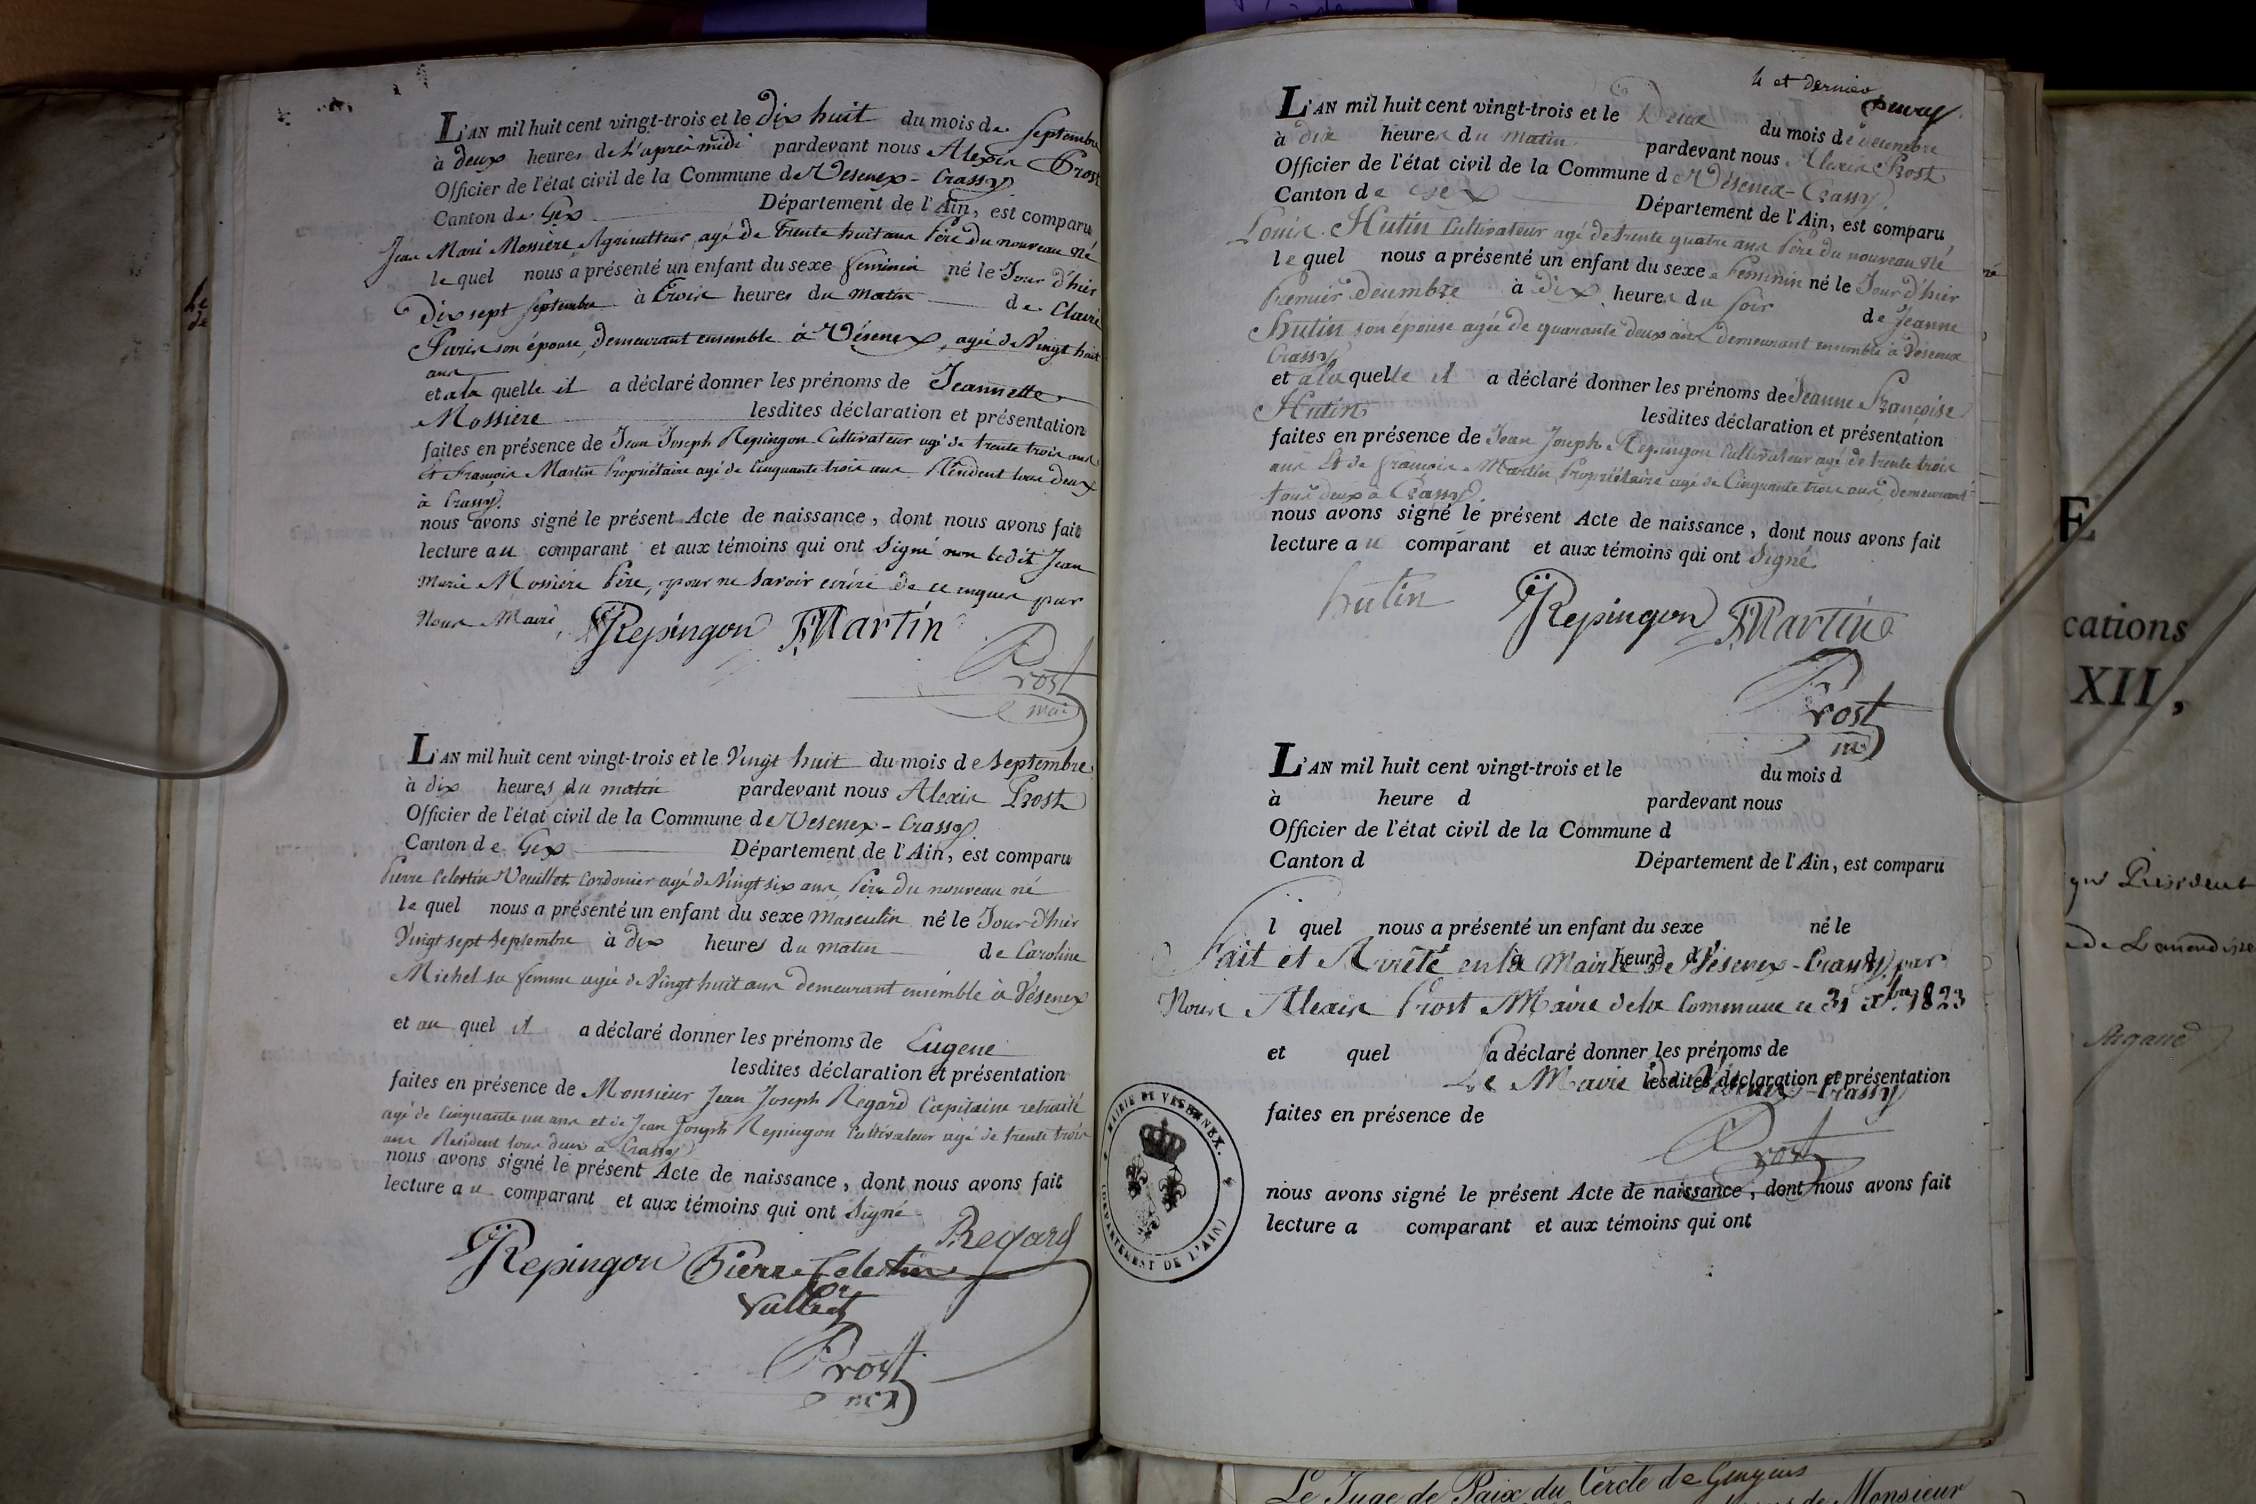 L'AN mil huit cent vingt-trois et le dix huit du mois de Septembre
à deux heures de L'après midi pardevant nous Alexis Prost
Officier de l'état civil de la Commune de Vesenex-Crassy
Canton de Gex Département de l'Ain, est comparu
Jean Marie Mossière Agriculteur agé de Trente huit ans Père du nouveau né
le quel nous a présenté un enfant du sexe feminin né le Jour d'hier
Dix sept Septembre à Trois heures du matin de Claire
son épouse, demeurant ensemble à Vésenex, agée de Vingt huit
ans
et a la quelle il a déclaré donner les prénoms de Jeannette
Mossière lesdites déclaration et présentation
faites en présence de Jean Joseph Repingon Cultivateur agé de trente trois ans
Et François Martin Propriétaire agé de Cinquante trois ans Résident tous deux
à Crassy.
nous avons signé le présent Acte de naissance, dont nous avons fait
lecture au comparant et aux témoins qui ont Signé non ledit Jean
Marie Mossière Père, pour ne Savoir ecrire de ce enquis par
Nous Maire,
JJRepingon FMartin
Prost
mai
L'AN mil huit cent vingt-trois et le Vingt huit du mois de Septembre
à dix heures du matin pardevant nous Alexis Prost
Officier de l'état civil de la Commune de Vesenex-Crassy.
Canton de Gex Département de l'Ain, est comparu
Pierre Celestin Vouillot Cordonier agé de Vingt six ans Père du nouveau né
le quel nous a présenté un enfant du sexe Masculin né le Jour d'hier
Vingt sept Septembre à dix heures du matin de Caroline
Michel sa femme agée de Vingt huit ans demeurant ensemble à Vésenex
et au quel il a déclaré donner les prénoms de Eugene
lesdites déclaration et présentation
faites en présence de Monsieur Jean Joseph Regard Capitaine retraité
agé de Cinquante un ans et de Jean Joseph Repingon Cultivateur agé de trente trois
ans Résident tous deux à Crassy
nous avons signé le présent Acte de naissance, dont nous avons fait
lecture au comparant et aux témoins qui ont Signé
Regard
JJRepingon Pierre Celestin
Prost
4 et dernier
L'AN mil huit cent vingt-trois et le Deux du mois de decembre
à dix heures du matin pardevant nous Alexis Prost
Officier de l'état civil de la Commune de Vésenex-Crassy.
Canton de Gex Département de l'Ain, est comparu
Louis Hutin Cultivateur agé de trente quatre ans Père du nouveau né
le quel nous a présenté un enfant du sexe Feminin né le Jour d'hier
Premier decembre à dix heures du soir de Jeanne
hutin son épouse agée de quarante deux ans demeurant ensemble à Vésenex
Crassy
et a la quelle il a déclaré donner les prénoms de Jeanne Françoise
Hutin lesdites déclaration et présentation
faites en présence de Jean Joseph Repingon Cultivateur agé de trente trois
ans Et de François Martin Propriétaire agé de Cinquante trois ans, demeurant
tous deux à Crassy.
nous avons signé le présent Acte de naissance, dont nous avons fait
lecture au comparant et aux témoins qui ont Signé
hutin JJRepingon FMartin
Prost
m
L'AN mil huit cent vingt-trois et le du mois d
à heure d pardevant nous
Officier de l'état civil de la Commune d
Canton d Département de l'Ain, est comparu
l quel nous a présenté un enfant du sexe né le
à heure d d
Fait et Arrêté en la Mairie de Vésenex-Crassy par
Nous Alexis Prost Maire de la Commune ce 31 Xbre 1823
et quel a déclaré donner les prénoms de
lesdites déclaration et présentation
Le Maire de Vésenex-Crassy
faites en présence de
Prost
nous avons signé le présent Acte de naissance, dont nous avons fait
lecture a comparant et aux témoins qui ont
MAIRIE DE VESENEX.
(DÉPARTEMENT DE L'AIN)
E
cations
XII,
Président
Le Juge de Paix du Cercle de Gingins
de Monsieur